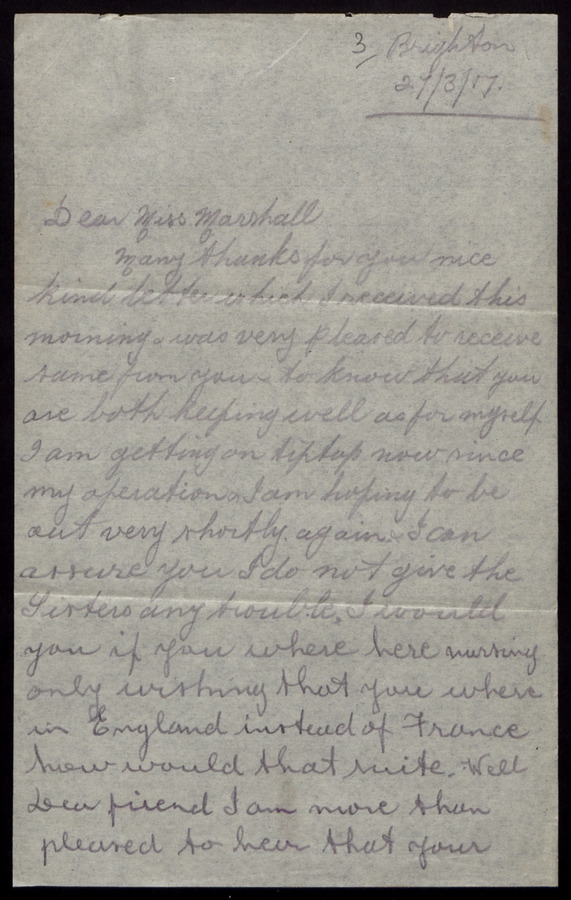 3, Brighton
27/3/17.
Dear Miss Marshall
Many thanks for your nice
kind letter which I received this
morning & was very pleased to receive
same from you & to know that you
are both keeping well as for myself
I am getting on tip top now since
my operation & I am hoping to be
out very shortly again. I can
assure you I do not give the
Sisters any trouble, I would
you if you where here nursing
only wishing that you where
in England instead of France
how would that suite. Well
Dear friend I am more than
pleased to hear that your